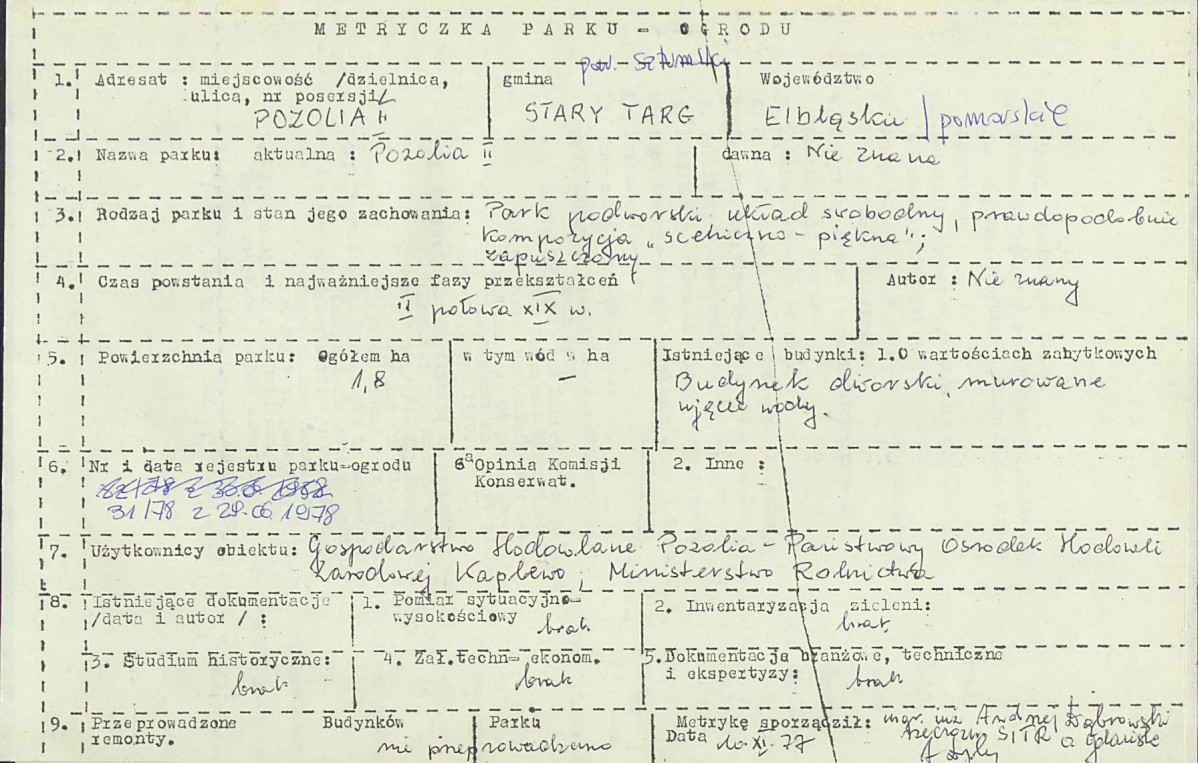 METRYCZKA PARKU - OGRODU
1. Adresat : miejscowość /dzielnica, ulica, nr posersji/
POZOLIA II
gmina pow. Sztumski
STARY TARG
Województwo
Elbląskie / pomorskie
2. Nazwa parku: aktualna : Pozolia II
dawna : Nie znana
3. Rodzaj parku i stan jego zachowania: Park podworski układ swobodny, prawdopodobnie
kompozycja „sceniczno - piękna";
zapuszczony
4. Czas powstania i najważniejsze fazy przekształceń
II połowa XIX w.
Autor : Nie znany
5. Powierzchnia parku: Ogółem ha
1,8
w tym wód w ha
—
Istniejące budynki: 1.O wartościach zabytkowych
Budynek dworski, murowane
ujęcie wody.
6. Nr i data rejestru parku-ogrodu
31/78 z 29.06.1978
6a Opinia Komisji
Konserwat.
2. Inne :
7. Użytkownicy obiektu: Gospodarstwo Hodowlane Pozolia - Państwowy Ośrodek Hodowli
Zarodowej Kaplewo, Ministerstwo Rolnictwa
8. Istniejące dokumentacje
/data i autor / :
1. Pomiar sytuacyjno-
wysokościowy brak
2. Inwentaryzacja zieleni:
brak
3. Studium historyczne:
brak
4. Zał.techn- ekonom.
brak
5. Dokumentacja branżowe, techniczne
i ekspertyzy: brak
9. Przeprowadzone
remonty.
Budynków
Parku
nie przeprowadzono
Metrykę sporządził: mgr. inż Andrzej Dąbrowski
Data 10.XI.77
SITR o/Gdańsk